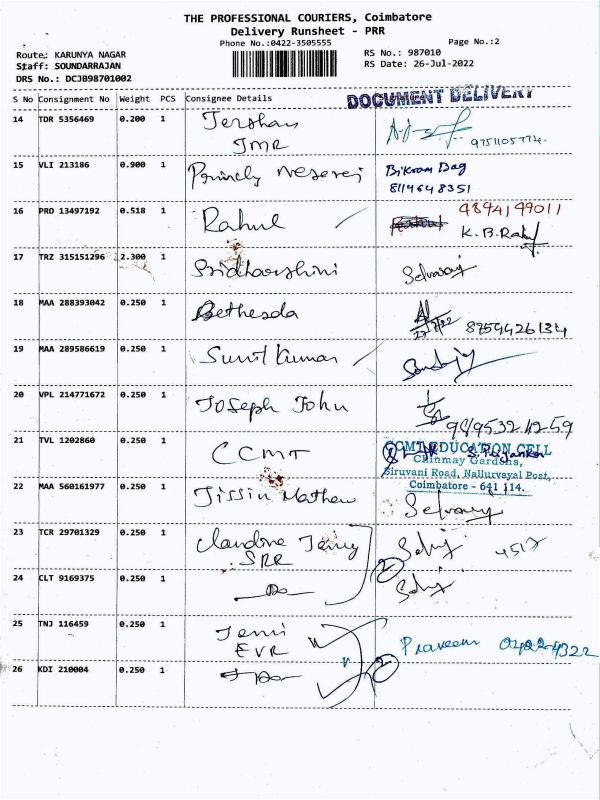 THE PROFESSIONAL COURIERS, Coimbatore
Delivery Runsheet - PRR
Phone No.:0422-3505555
Page No.:2
Route: KARUNYA NAGAR
Staff: SOUNDARRAJAN
DRS No.: DCJB98701002
RS No.: 987010
RS Date: 26-Jul-2022
S No Consignment No Weight PCS Consignee Details
DOCUMENT DELIVERY
14 TDR 5356469 0.200 1 Jershan
JMR
9751105774.
15 VLI 213186 0.900 1 Bikram Dag
8114648351
16 PRO 13497192 0.518 1 Rahul 4894149011
K.B.Rahul
17 TRZ 315151296 2.300 1 Sridharshini Selvaraj
18 MAA 288393042 0.250 1 Bethesda
8754426134
19 MAA 289586619 0.250 1 Sunil Kumar
20 VPL 214771672 0.250 1 Joseph John
9895324259
21 TVL 1202860 0.250 1 CCMT CCMT EDUCATION CELL
S. Priyanka
Chinmay Gardens,
Siruvani Road, Nallurvayal Post,
Coimbatore - 641 114.
22 MAA 560161977 0.250 1 Jissin Mathew
23 TCR 29701329 0.250 1 Claudine Jemy 4517
SRR
24 CLT 9169375 0.250 1 Do 2
25 TNJ 116459 0.250 1 Jemi Praveen
EVR
26 KDI 210004 0.250 1 Do 2